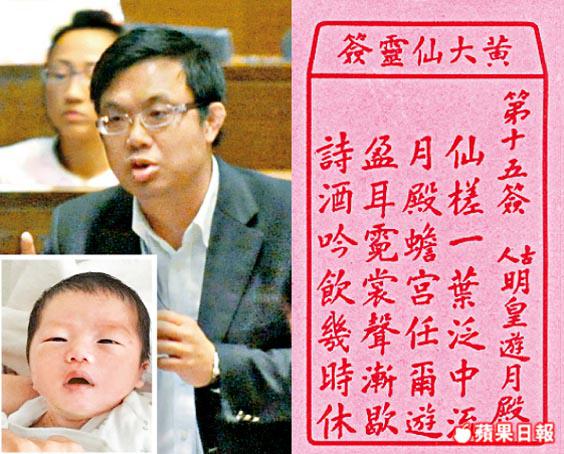 黃大仙靈簽
第十五簽 古人 明皇遊月殿
仙槎一葉泛中流
月殿蟾宮任爾遊
盈耳霓裳聲漸歇
詩酒吟飲幾時休
蘋果日報